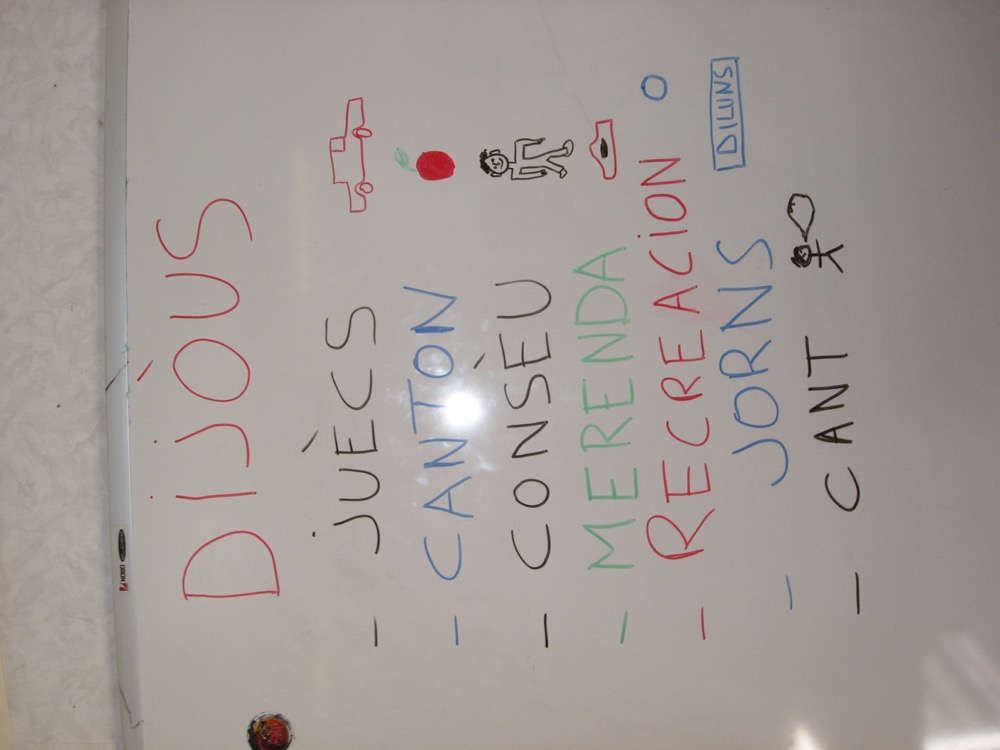 DIJÒUS
- JUÈCS
- CANTON
- CONSÈU
- MERENDA
- RECREACION
- JORNS DILUNS
- CANT